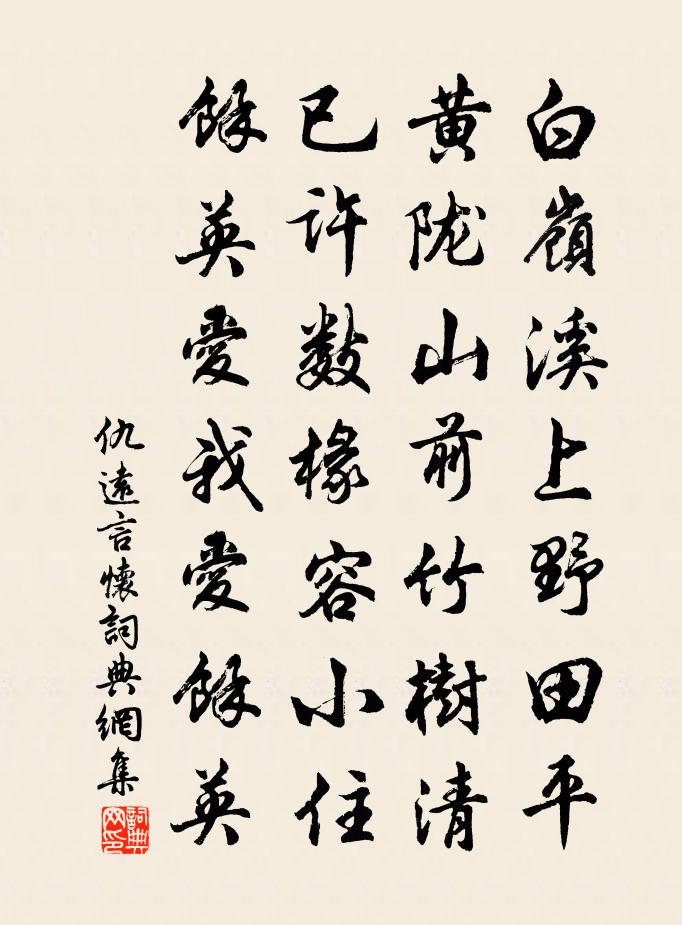 白嶺溪上野田平
黄陇山前竹樹清
已許数椽容小住
餘英愛我愛餘英
仇遠言懷詞典網集
詞典网印